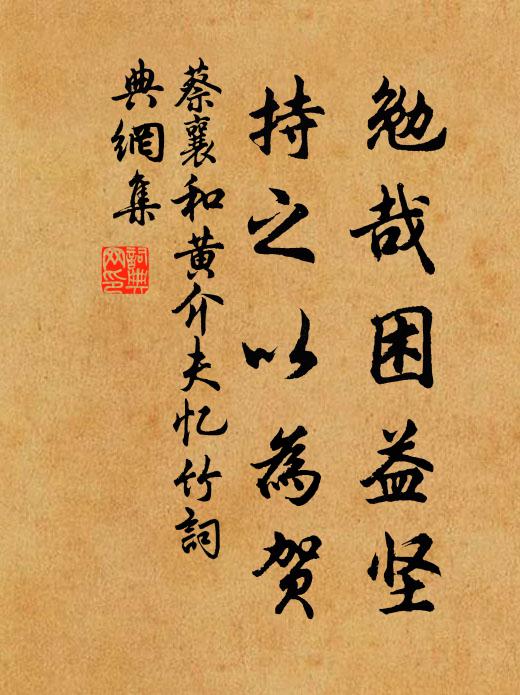 勉哉困益坚
持之以為贺
蔡襄和黄介夫忆竹詞
典網集
詞典
网印